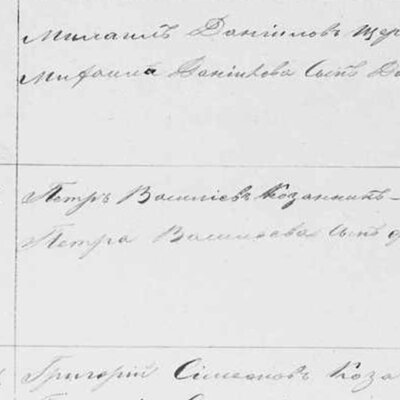 Михаилъ Даніиловъ Щер
Михаила Даніилова сынъ Да
Петръ Василіевъ Козакинъ-
Петра Василіева сынъ
Григорій Сімеоновъ Коза